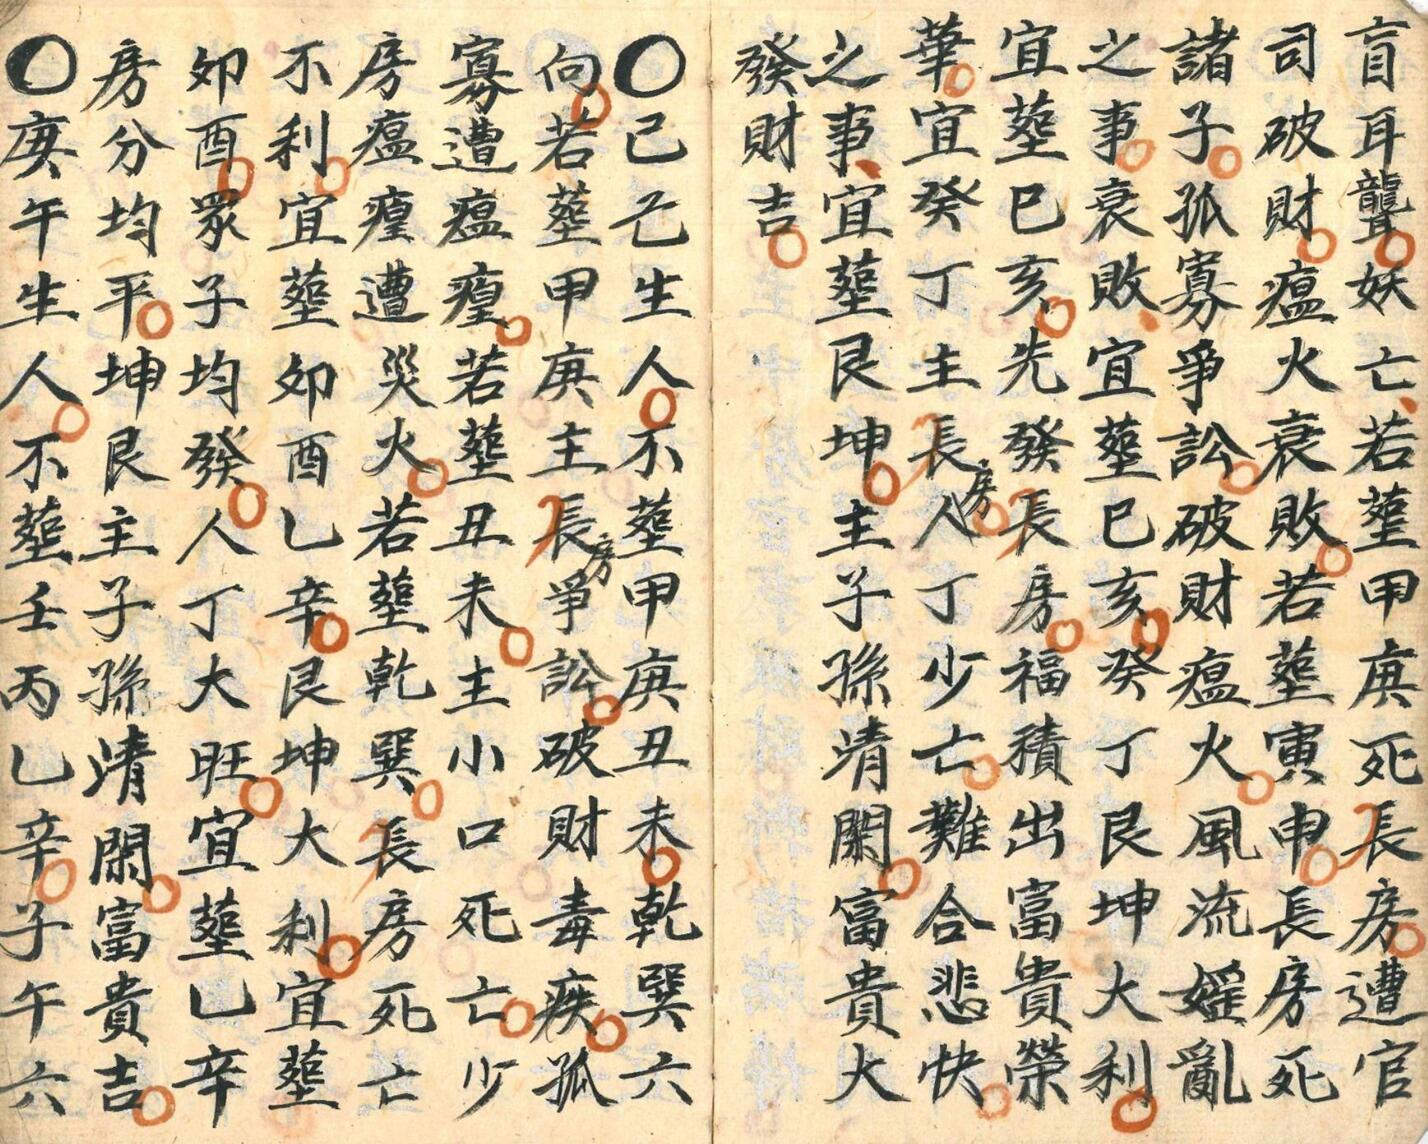 盲耳聾妖亡若塟甲庚死長房遭官
司破財瘟火衰敗若塟寅申長房死
諸子孤寡爭訟破財瘟火風流婬亂
之事衰敗宜塟巳亥癸丁艮坤大利
宜塟巳亥先發長房福積出富貴榮
華宜癸丁主長房人丁少亡難合悲快
之事宜塟艮坤主子孫清閑富貴大
發財吉
〇己亡生人不塟甲庚丑未乾巽六
向若塟甲庚主長房爭訟破財毒疾孤
寡遭瘟瘟若塟丑未主小口死亡少
房瘟瘟遭災火若塟乾巽長房死亡
不利宜塟夘酉乙辛艮坤大利宜塟
夘酉眾子均發人丁大旺宜塟乙辛
房分均平坤艮主子孫清閑富貴吉
〇庚午生人不塟壬丙乙辛子午六